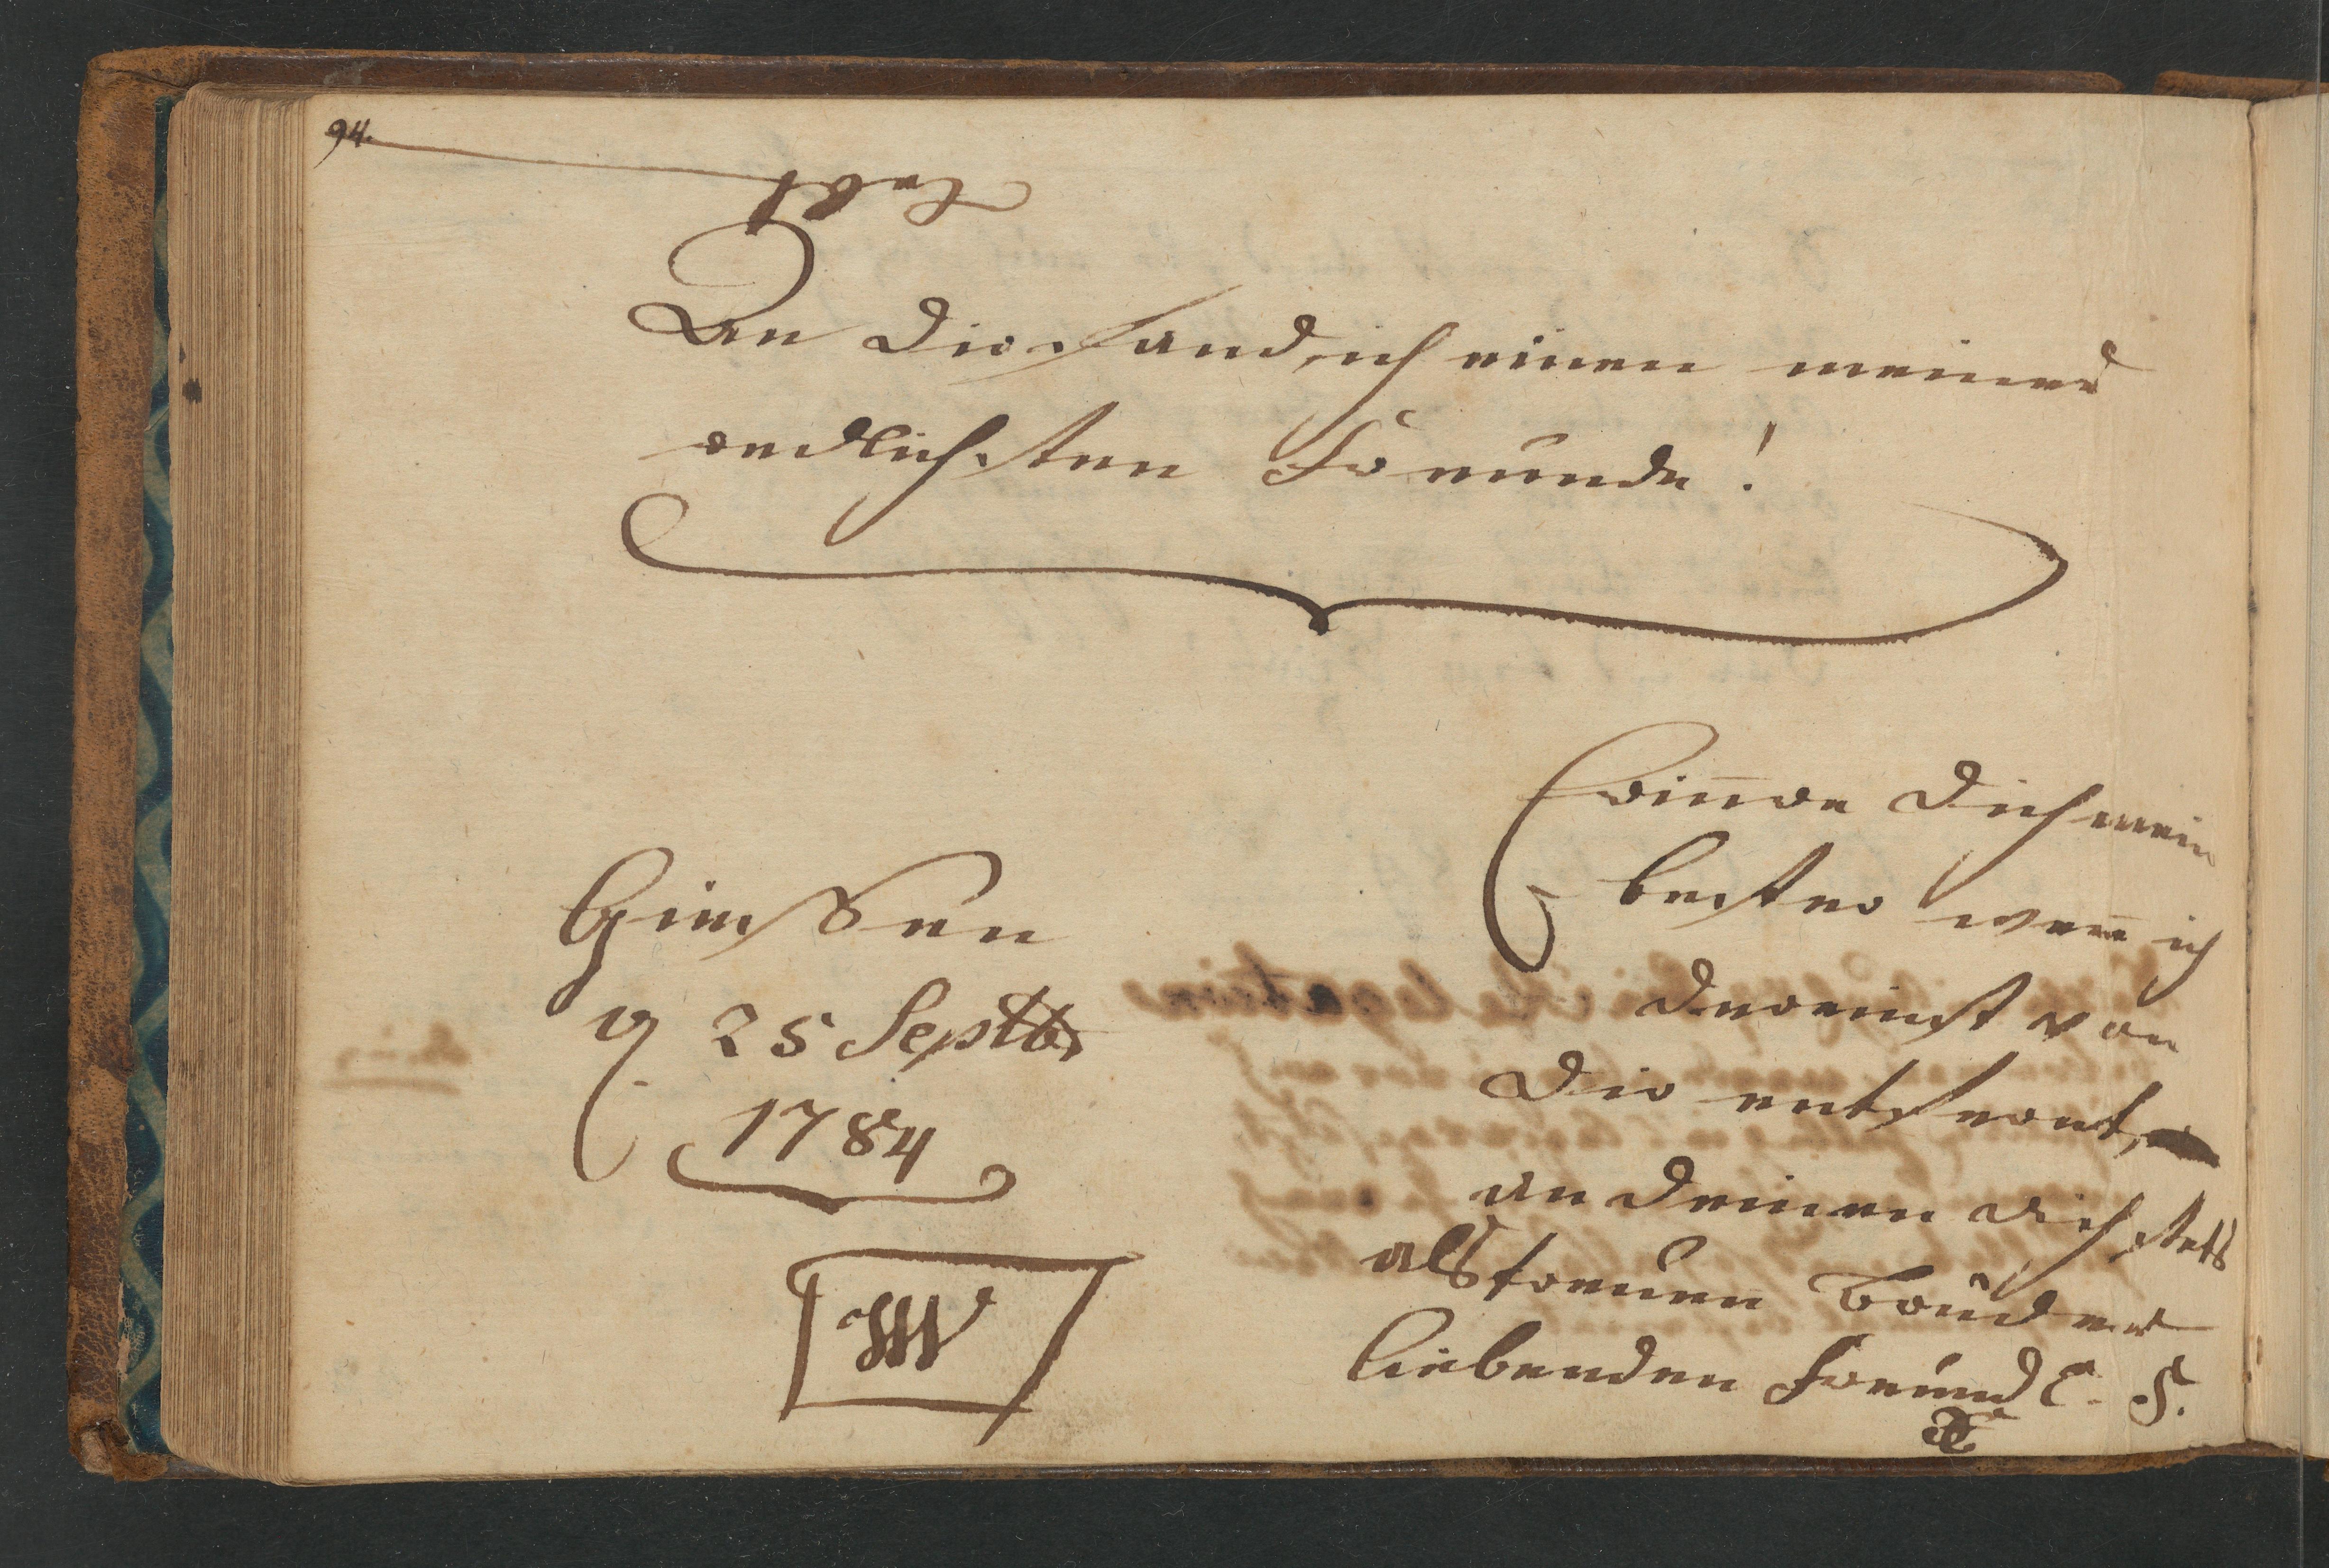 94.
An Dir fand ich einen meiner
redlichsten Freunde!
Eriñre Dich mein
bester weñ ich
dereinst von
Dir entfernt,
an deinen Dich stets
als treuen Bruder
liebenden Freund C. S.
Giessen
25 Septbr
1784